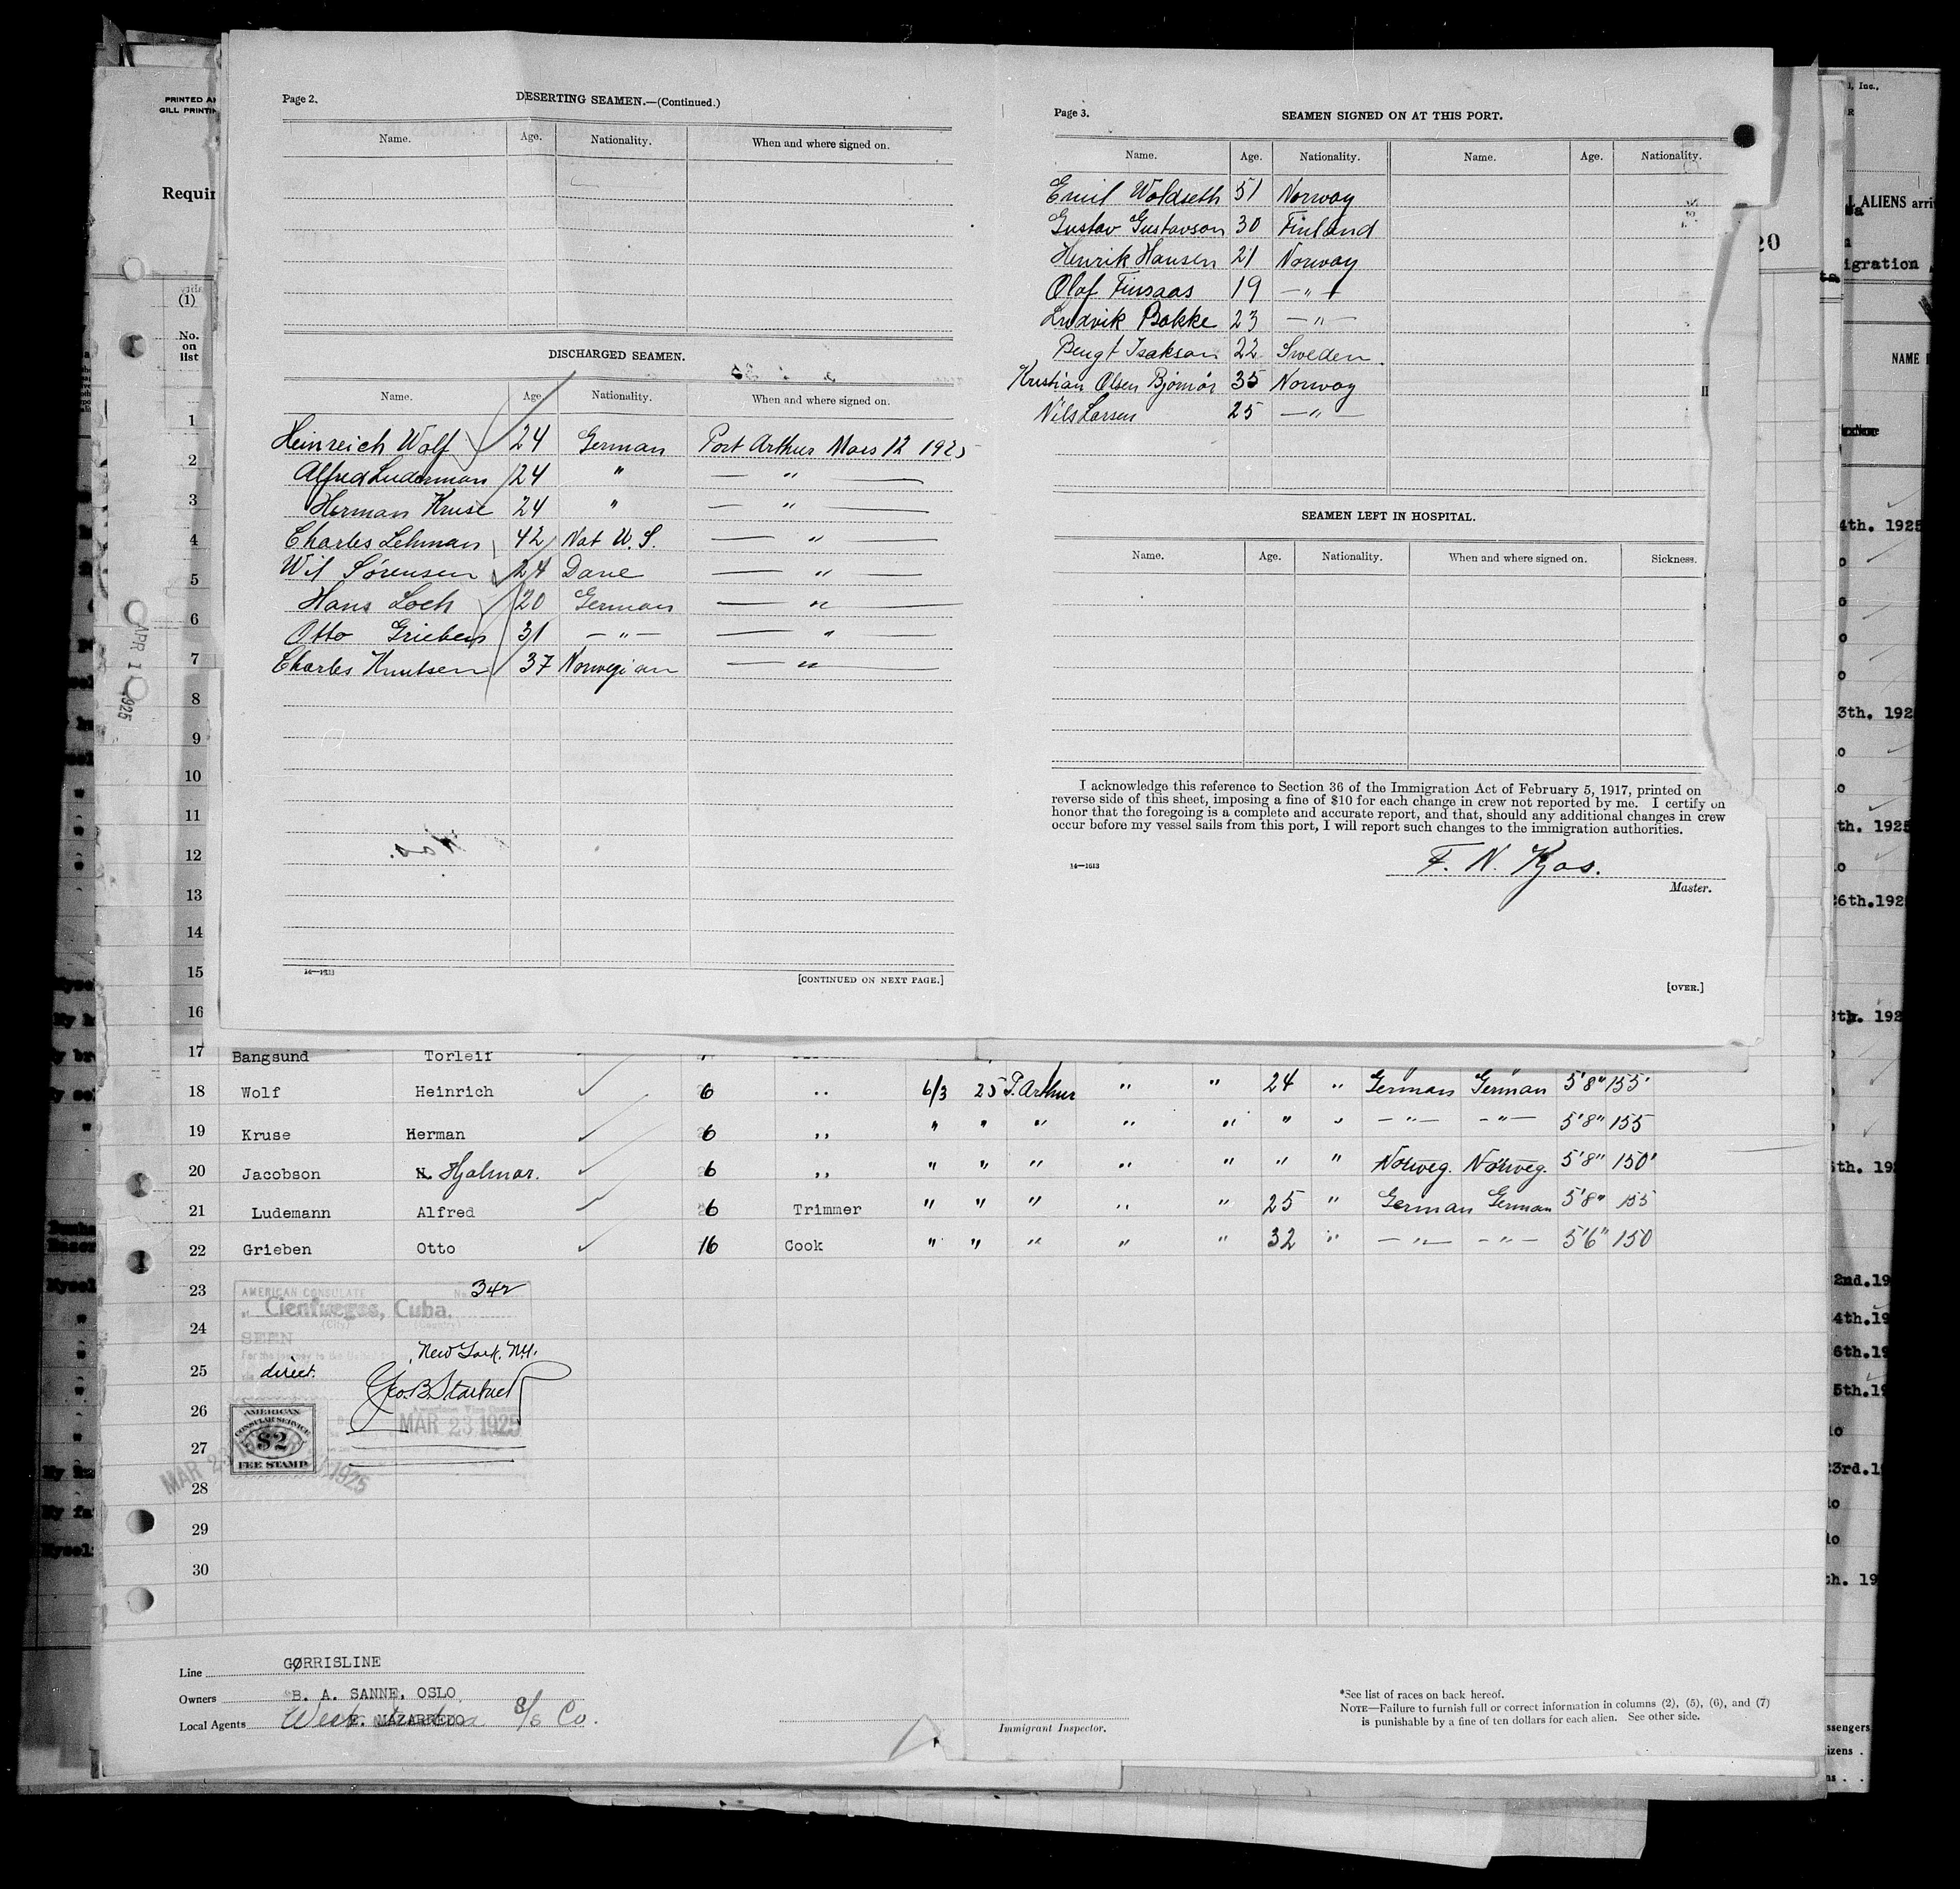 Page 2.
DESERTING SEAMEN.—(Continued.)
Name. Age. Nationality. When and where signed on.
DISCHARGED SEAMEN.
Name. Age. Nationality. When and where signed on.
Heinreich Wolf 24 German Port Arthur Mars 12 1925
Alfred Luderman 24 " — " —
Herman Kruse 24 " — " —
Charles Lehman 42 Nat U. S. — " —
Wil Sørensen 24 Dane — " —
Hans Loch 20 German — " —
Otto Grieben 31 — " — — " —
Charles Knutsen 37 Norwegian — " —
14—1613
[CONTINUED ON NEXT PAGE.]
Page 3.
SEAMEN SIGNED ON AT THIS PORT.
Name. Age. Nationality. Name. Age. Nationality.
Emil Woldseth 51 Norway
Gustav Gustavson 30 Finland
Henrik Hansen 21 Norway
Olaf Finsaas 19 — " —
Ludvik Bakke 23 — " —
Bengt Isakson 22 Sweden
Kristian Olsen Bjørnør 35 Norway
Nils Larsen 25 — " —
SEAMEN LEFT IN HOSPITAL.
Name. Age. Nationality. When and where signed on. Sickness.
I acknowledge this reference to Section 36 of the Immigration Act of February 5, 1917, printed on
reverse side of this sheet, imposing a fine of $10 for each change in crew not reported by me. I certify on
honor that the foregoing is a complete and accurate report, and that, should any additional changes in crew
occur before my vessel sails from this port, I will report such changes to the immigration authorities.
14—1613
F. N. Kjos.
Master.
[OVER.]
PRINTED
GILL PRINTIN
Requir
(1)
No.
on
list
1
2
3
4
5
6
7
8
9
10
11
12
13
14
15
16
APR 1 1925
17 Bangsund Torleif
18 Wolf Heinrich 6 ,, 6/3 25 P. Arthur " " 24 " German German 5'8" 155'
19 Kruse Herman 6 ,, " " " " " " " — " — — " — 5'8" 155
20 Jacobson H. Hjalmar. 6 ,, " " " " " " " Norweg. Norweg. 5'8" 150'
21 Ludemann Alfred 6 Trimmer " " " " " 25 " German German 5'8" 155
22 Grieben Otto 16 Cook " " " " " 32 " — " — — " — 5'6" 150
23
24
25
26
27
28
29
30
AMERICAN CONSULATE No. 342
at Cienfuegos, Cuba.
(City) (Country)
SEEN
For the journey to the United
New York, N.Y.
direct.
MAR 23 1925
AMERICAN
CONSULAR SERVICE
$2
FEE STAMP
MAR 23 1925
Line GØRRISLINE
Owners B. A. SANNE, OSLO
Local Agents E. MAZARREDO S/S Co.
Immigrant Inspector.
*See list of races on back hereof.
NOTE—Failure to furnish full or correct information in columns (2), (5), (6), and (7)
is punishable by a fine of ten dollars for each alien. See other side.
20
ALIENS arri
igration
NAME
4th. 1925
3th. 192
th. 1925
26th.192
2nd.19
4th.19
6th.19
5th.19
3rd.1
th. 19
ssengers
izens